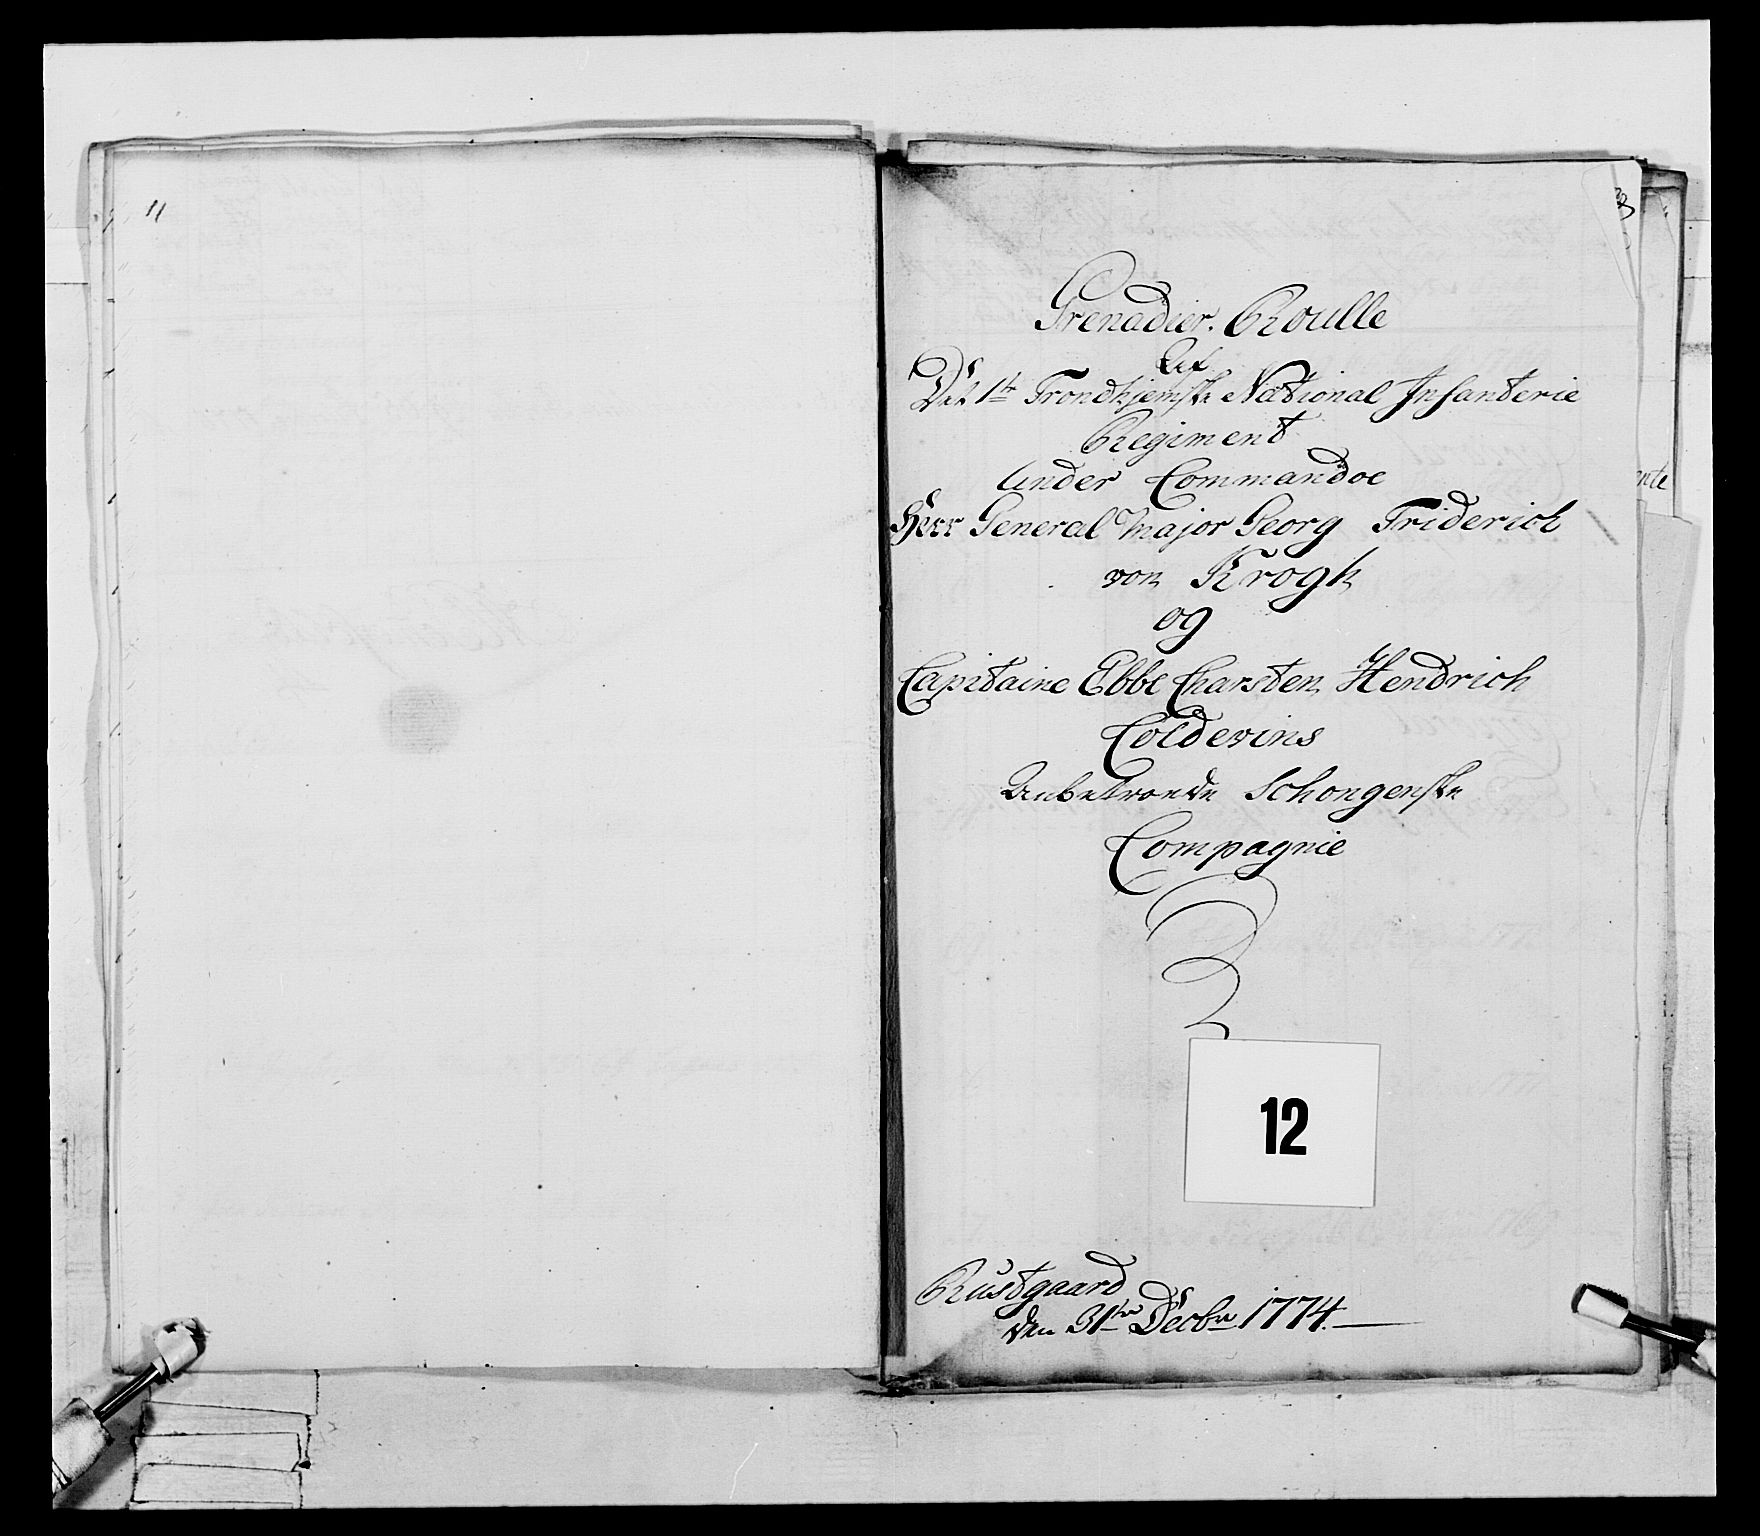 11
Grenadier. Roulle
Af
Det 1te Trondhjemske National Infanterie
Regiment
Under Commandoe
Herr General Major Georg Friderich
von Krogh
og
Capitaine Ebbe Charsten Hendrich
Coldevins
Anbetroede Schongenske
Compagnie
12
Rustgaard
den 31te Decbr 1774.